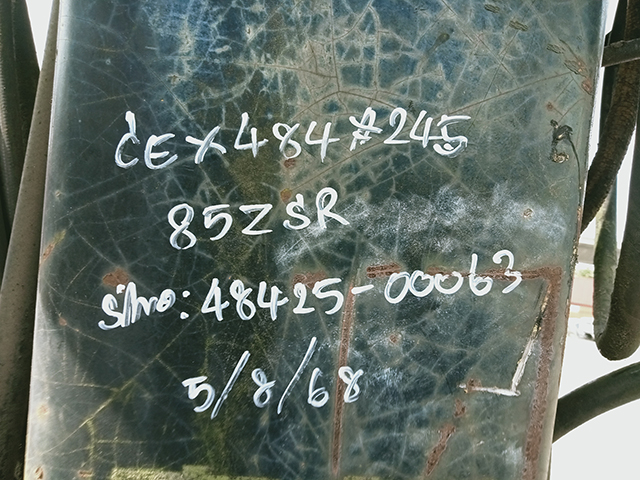 CEX484#245
85ZSR
S/no: 48425-00063
5/8/68